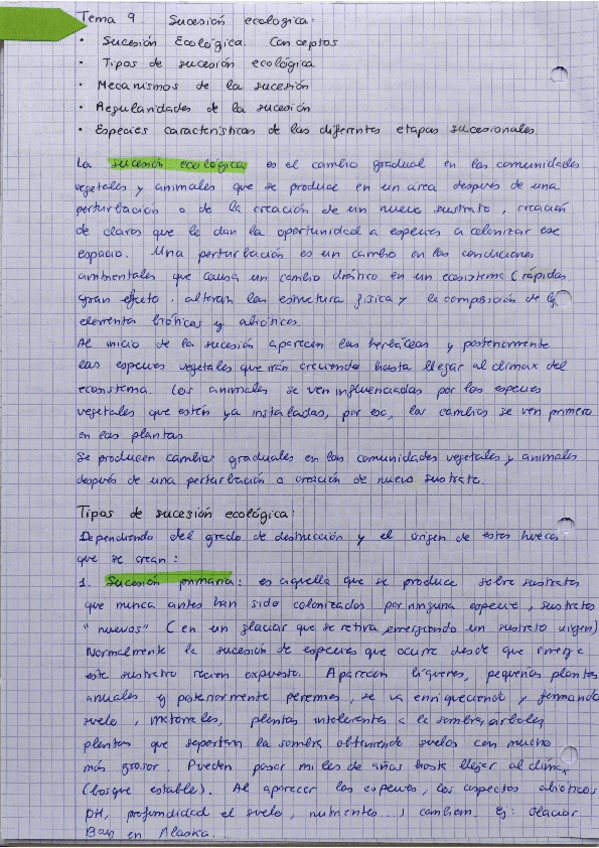 Tema 9. Sucesión ecologica:
• Sucesión Ecológica. Conceptos
• Tipos de sucesión ecológica
• Mecanismos de la sucesión
• Regularidades de la sucesión
• Especies características de las diferentes etapas sucesionales
La sucesión ecológica es el cambio gradual en las comunidades
vegetales y animales que se produce en un área después de una
perturbación o de la creación de un nuevo sustrato, creación
de claros que le dan la oportunidad a especies a colonizar ese
espacio. Una perturbación es un cambio en las condiciones
ambientales que causa un cambio drástico en un ecosistema (rápidas
gran efecto. alteran la estructura física y la composición de
elementos bióticos y abióticos.
Al inicio de la sucesión aparecen las herbáceas y posteriormente
las especies vegetales que irán creciendo hasta llegar al climax del
ecosistema. Los animales se ven influenciados por las especies
vegetales que estén ya instaladas, por eso, los cambios se ven primero
en las plantas
Se producen cambios graduales en las comunidades vegetales y animales
después de una perturbación o creación de nuevo sustrato.
Tipos de sucesión ecológica:
Dependiendo del grado de destrucción y el origen de estos huecos
que se crean:
1. Sucesión primaria: es aquella que se produce sobre sustratos
que nunca antes han sido colonizados por ninguna especie, sustratos
"nuevos" (en un glaciar que se retira, emergiendo un sustrato virgen)
Normalmente la sucesión de especies que ocurre desde que emerge
este sustrato recien expuesto. Aparecen líquenes, pequeñas plantas
anuales y posteriormente perennes, se va enriqueciendo y formando
suelo, matorrales, plantas intolerantes a la sombra, árboles
plantas que soportan la sombra obteniendo suelos con mucho
más grosor. Pueden pasar miles de años hasta llegar al climax
(bosque estable). Al aparecer las especies, los aspectos abióticos
pH, profundidad el suelo, nutrientes...) cambian. Ej: Glaciar
Bay en Alaska.